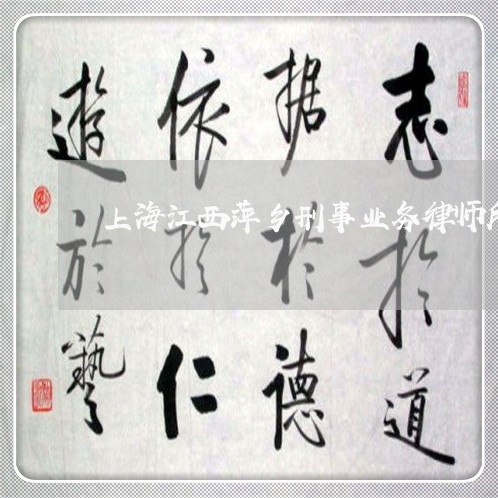 志於道
据於德
依於仁
遊於藝
上海江西萍乡刑事业务律师